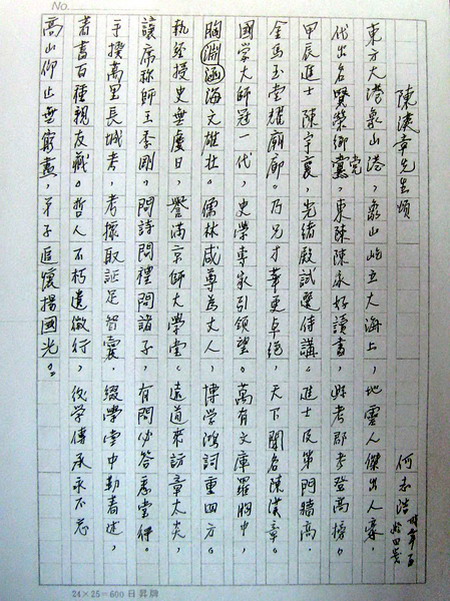 No.
陳漢章先生頌
何志浩
東方大港象山港,象山屹立大海上,地靈人傑出人豪。
代出名賢榮鄉黨,東陳陳家好讀書,縣考郡考登高榜。
甲辰進士陳宇襄,光緒殿試選侍講。進士及第門牆高,
金馬玉堂耀廟廊。乃兄才華更卓絕,天下聞名陳漢章。
國學大師冠一代,史學專家引領望。萬有文庫羅胸中,
胸涵淵海文雄壯。儒林咸尊為丈人,博學鴻詞重四方。
執經授史無虛日,譽滿京師大學堂。遠道來訪章太炎,
讓席稱師王季剛。問詩問禮問諸子,有問必答
手撰萬里長城考,考據取証足智囊。綴學堂中勤著述,
著書百種親友藏。哲人不朽遺徽行,後學傳承永不忘
高山仰止無窮盡,弟子追懷揚國光。
24×25=600 日昇牌